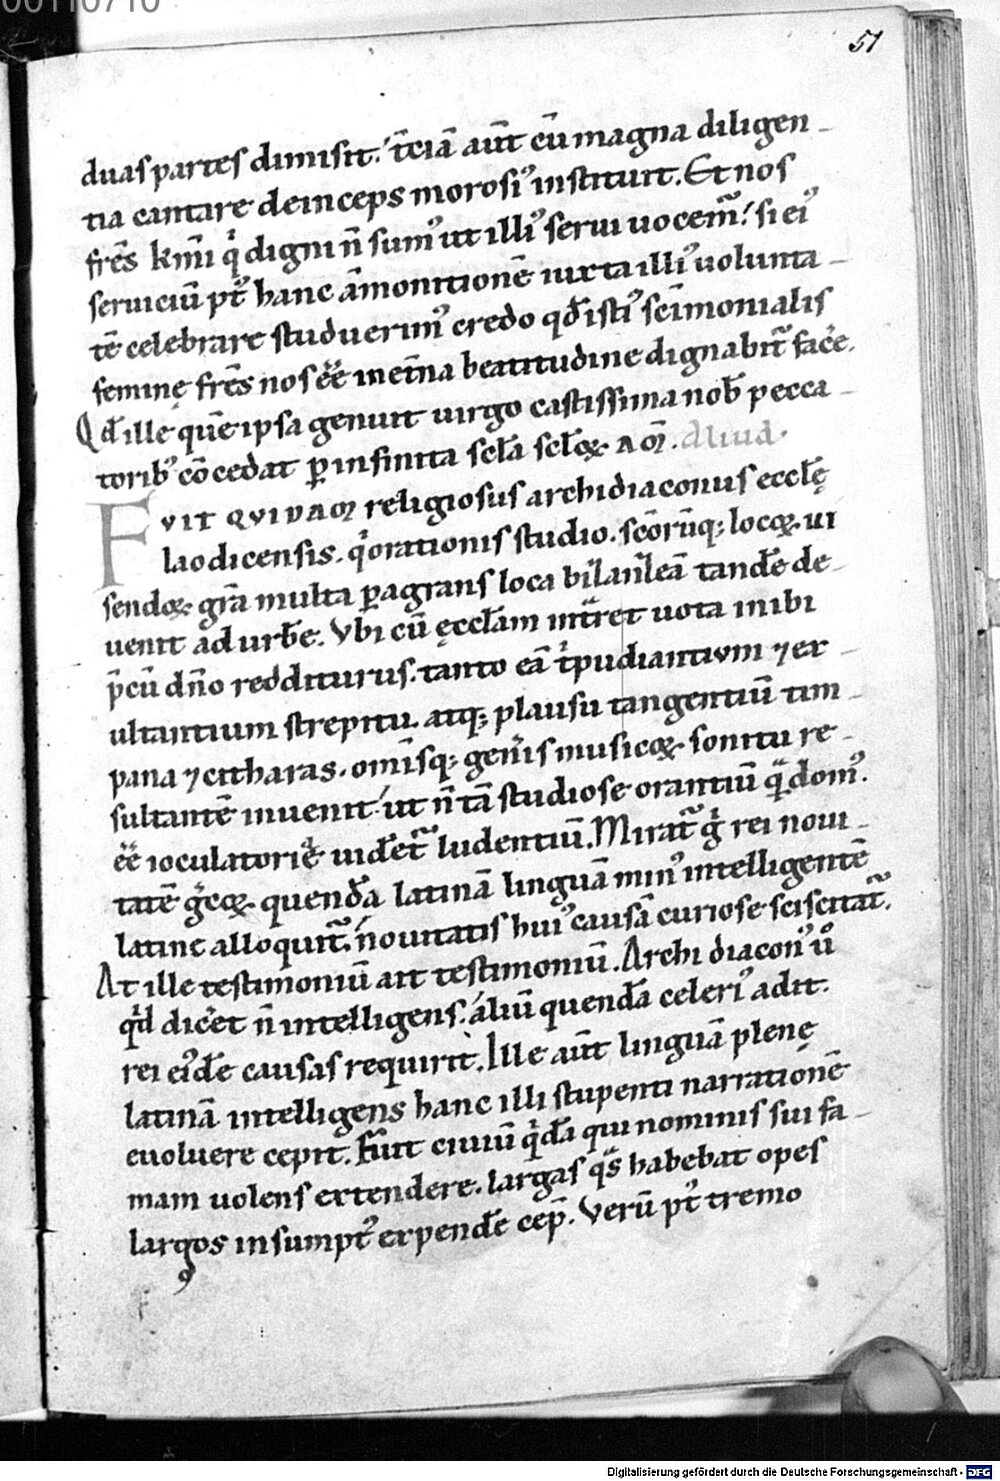 00110710
51
duas partes dimisit. t̄ciā aūt cū magna diligen-
tia cantare deinceps morosiꝰ instituit. Et nos
fr̄es k̄mi qͥ digni n̄ sumꝰ ut illiꝰ serui uocem̄. si eiꝰ
seruiciū pt̄ hanc āmonitionē iuxta illiꝰ uolunta-
tē celebrare studuerimꝰ credo qđ istiꝰ sc̄imonialis
feminę fr̄es nos ēē in et̄na beatitudine dignabit̄ fac̄e.
Qđ ille quē ipsa genuit uirgo castissima nob̄ pecca-
toribꝰ c̄ocedat ꝑ infinita scl̄a scl̄oꝝ aɱ. Aliud.
FVIT QVIDAM religiosus archidiaconus eccl̄ę
laodicensis. qͥ orationis studio. sc̄orūq; locoꝝ ui
sendoꝝ gr̄a multa ꝑagrans loca bilanleā tandē de-
uenit ad urbē. Vbi cū ęccl̄am int̄ret uota inibi
p̄cū dn̄o redditurus. tanto eā tͥpudiantium ⁊ ex-
ultantium strepitu. atq; plausu tangentiū tim-
pana ⁊ citharas. om̄isq; gen̄is musicoꝝ sonitu re-
sultantē inuenit. ut n̄ tā studiose orantiū qͣ domꝰ.
ēē ioculatoriē uidet̄ ludentiū. Mirat̄ gͥ rei noui-
tatē gͥcoꝝ quendā latinā linguā minꝰ intelligentē
latine alloquit̄. nouitatis huiꝰ causā curiose sciscitat̄.
At ille testimoniū ait testimoniū. Archi diaconꝰ uͦ
qͥd dicet n̄ intelligens. aliū quendā celeriꝰ adit.
rei eiꝰdē causas requirit. Ille aūt linguā plenę
latinā intelligens hanc illi stupenti narrationē
euoluere cepit. Fuit ciuiū qͥdā qui nominis sui fa-
mam uolens extendere. largas qͣs habebat opes
largos in sumptꝰ expendē cep̄. Verū pt̄ tremo
9
Digitalisierung gefördert durch die Deutsche Forschungsgemeinschaft - DFG